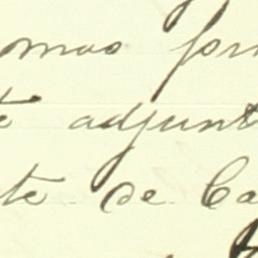 mas for
te adjunt
te de Ca